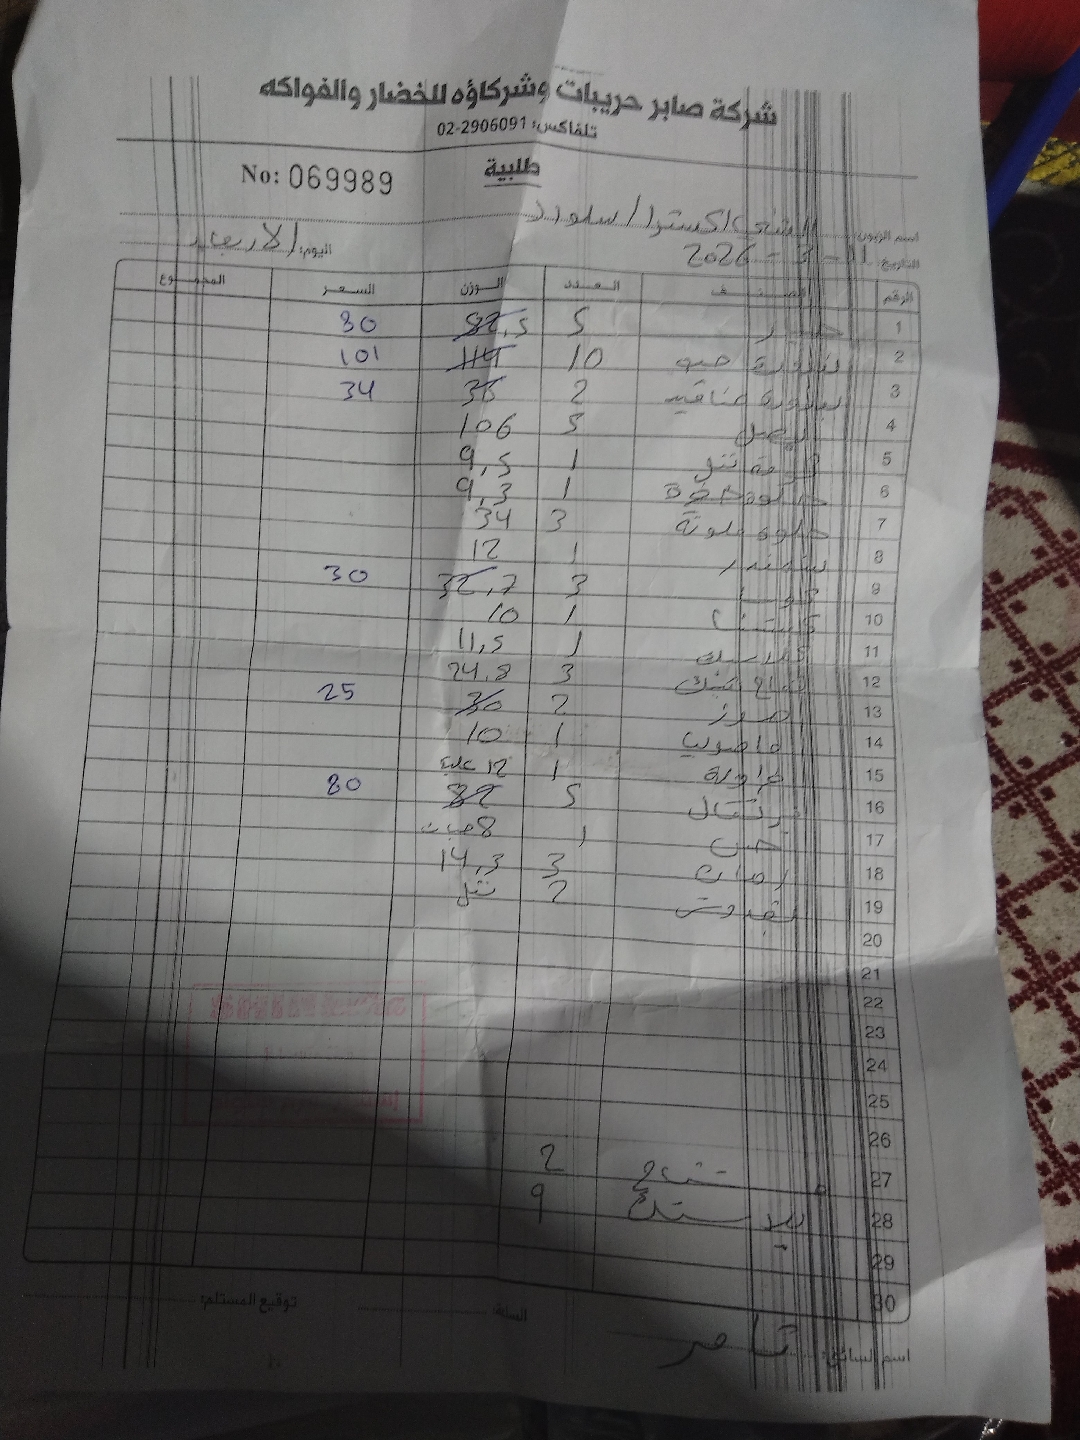 شركة صابر حريبات وشركاؤه للخضار والفواكه
تلفاكس: 02-2906091
طلبية
No: 069989
اسم الزبون: الشني اكسترا / سلواد
التاريخ: 11 - 3 - 2026 اليوم: الاربعاء
الرقم الصنف العدد الوزن السعر المجموع
1 خيار 5 82,5 80
2 بندورة حبو 10 114 101
3 بندورة عناقيد 2 38 34
4 بصل 5 106
5 1 9,5
6 1 9,3
7 حلوة ملونة 3 34
8 شمندر 1 12
9 كوسا 3 32,7 30
10 كستنا 1 10
11 1 11,5
12 تفاح 3 24,8
13 موز 2 30 25
14 فاصوليا 1 10
15 فراولة 1 12 علبة
16 برتقال 5 82 80
17 خس 1 8 حبات
18 رمان 3 14,3
19 بقدونس 2
20
21
22
23
24
25
26
27 مشتاح 2
28 بلاستك 9
29
30
اسم السائق: تامر السلة: توقيع المستلم: